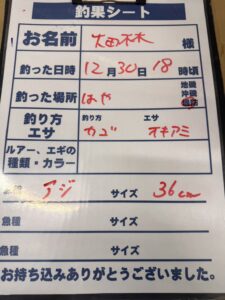 釣果シート
お名前 様
釣った日時 12月30日18時頃
釣った場所 はや 地磯 沖磯
釣り方 釣り方 エサ
エサ カゴ オキアミ
ルアー、エギの
種類・カラー
アジ サイズ 36cm
魚種 サイズ
魚種 サイズ
お持ち込みありがとうございました。